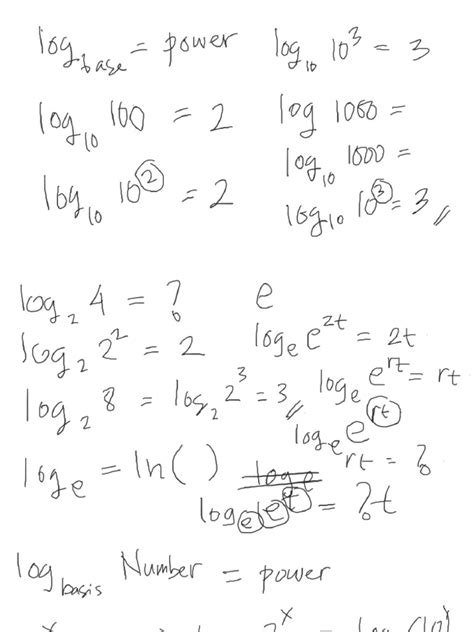 log_base = power
log_10 10^3 = 3
log_10 100 = 2
log 1000 =
log_10 1000 =
log_10 10^2 = 2
log_10 10^3 = 3 //
log_2 4 = ?
e
log_e e^2t = 2t
log_2 2^2 = 2
log_e e^rt = rt
log_2 8 = log_2 2^3 = 3 //
log_e e^rt
rt = ?
log_e = ln( )
log_e e^t = ?t
log_basis Number = power